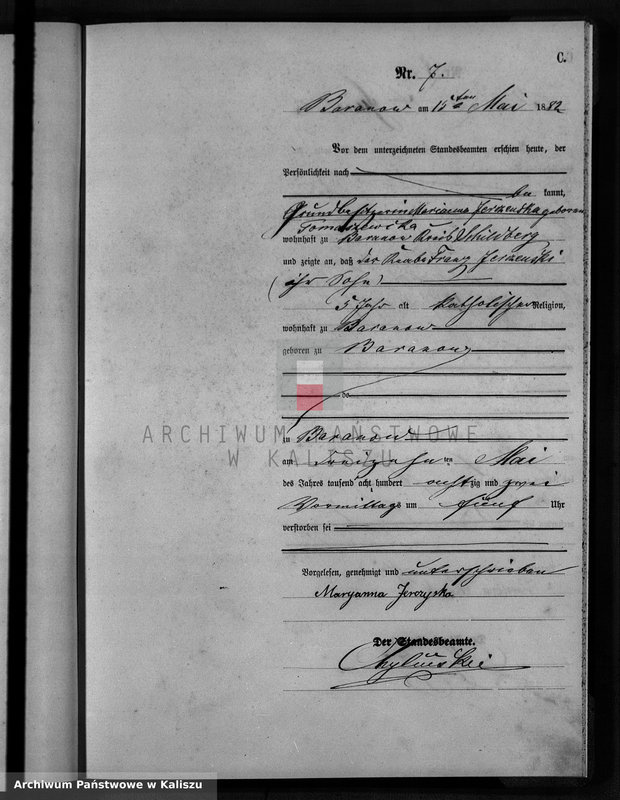 C.
Nr. 7.
Baranow am 15ten Mai 1882
Vor dem unterzeichneten Standesbeamten erschien heute, der
Persönlichkeit nach
be kannt,
Grundbesitzerin Marianna Jerzenska geboren
Tomaszewska
wohnhaft zu Baranow Kreis Schildberg
und zeigte an, daß der Knabe Franz Jerzenski
(ihr Sohn)
5 Jahr alt katholischer Religion,
wohnhaft zu Baranow
geboren zu Baranow
zu Baranow
am dreizehnten Mai
des Jahres tausend acht hundert achtzig und zwei
Vormittags um fünf Uhr
verstorben sei
Vorgelesen, genehmigt und unterschrieben
Maryanna
Der Standesbeamte.
ARCHIWUM PAŃSTWOWE
W KALISZU
Archiwum Państwowe w Kaliszu